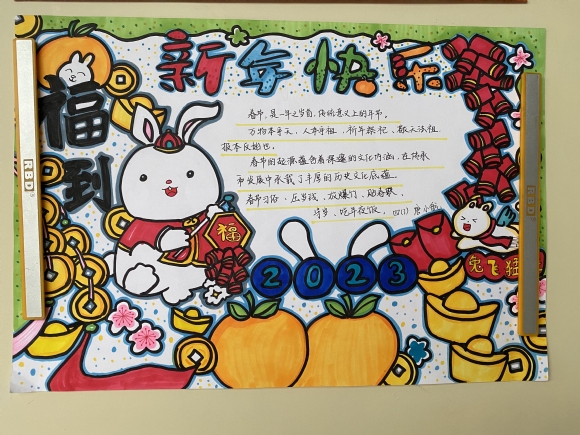 新年快乐
福到
RBD
春节,是一年之岁首,传统意义上的年节。
万物本乎天,人本乎祖,祈年祭祀、敬天法祖,
报本反始也。
春节的起源蕴含着深邃的文化内涵,在传承
和发展中承载了丰厚的历史文化底蕴。
春节习俗、压岁钱、放爆竹、贴春联、
守岁、吃年夜饭。
福
2023
兔飞猛
RBD